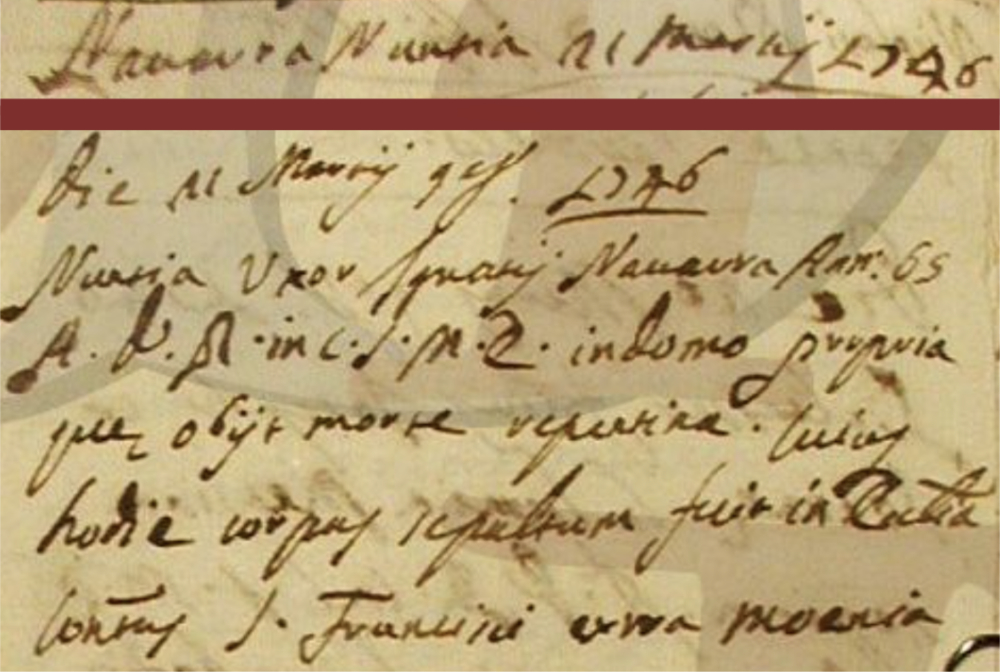 Nauarra Nuntia 21 Martij 1746
Die 21 Martij 9 Ind. 1746
Nuntia Uxor Ignatij Nauarra Ann: 65
A. D. R. in C. S. M. E. in domo propria
quę obijt morte repentina. Cuius
hodie corpus sepultum fuit in Eccla
Conttus S. Francisci extra moenia